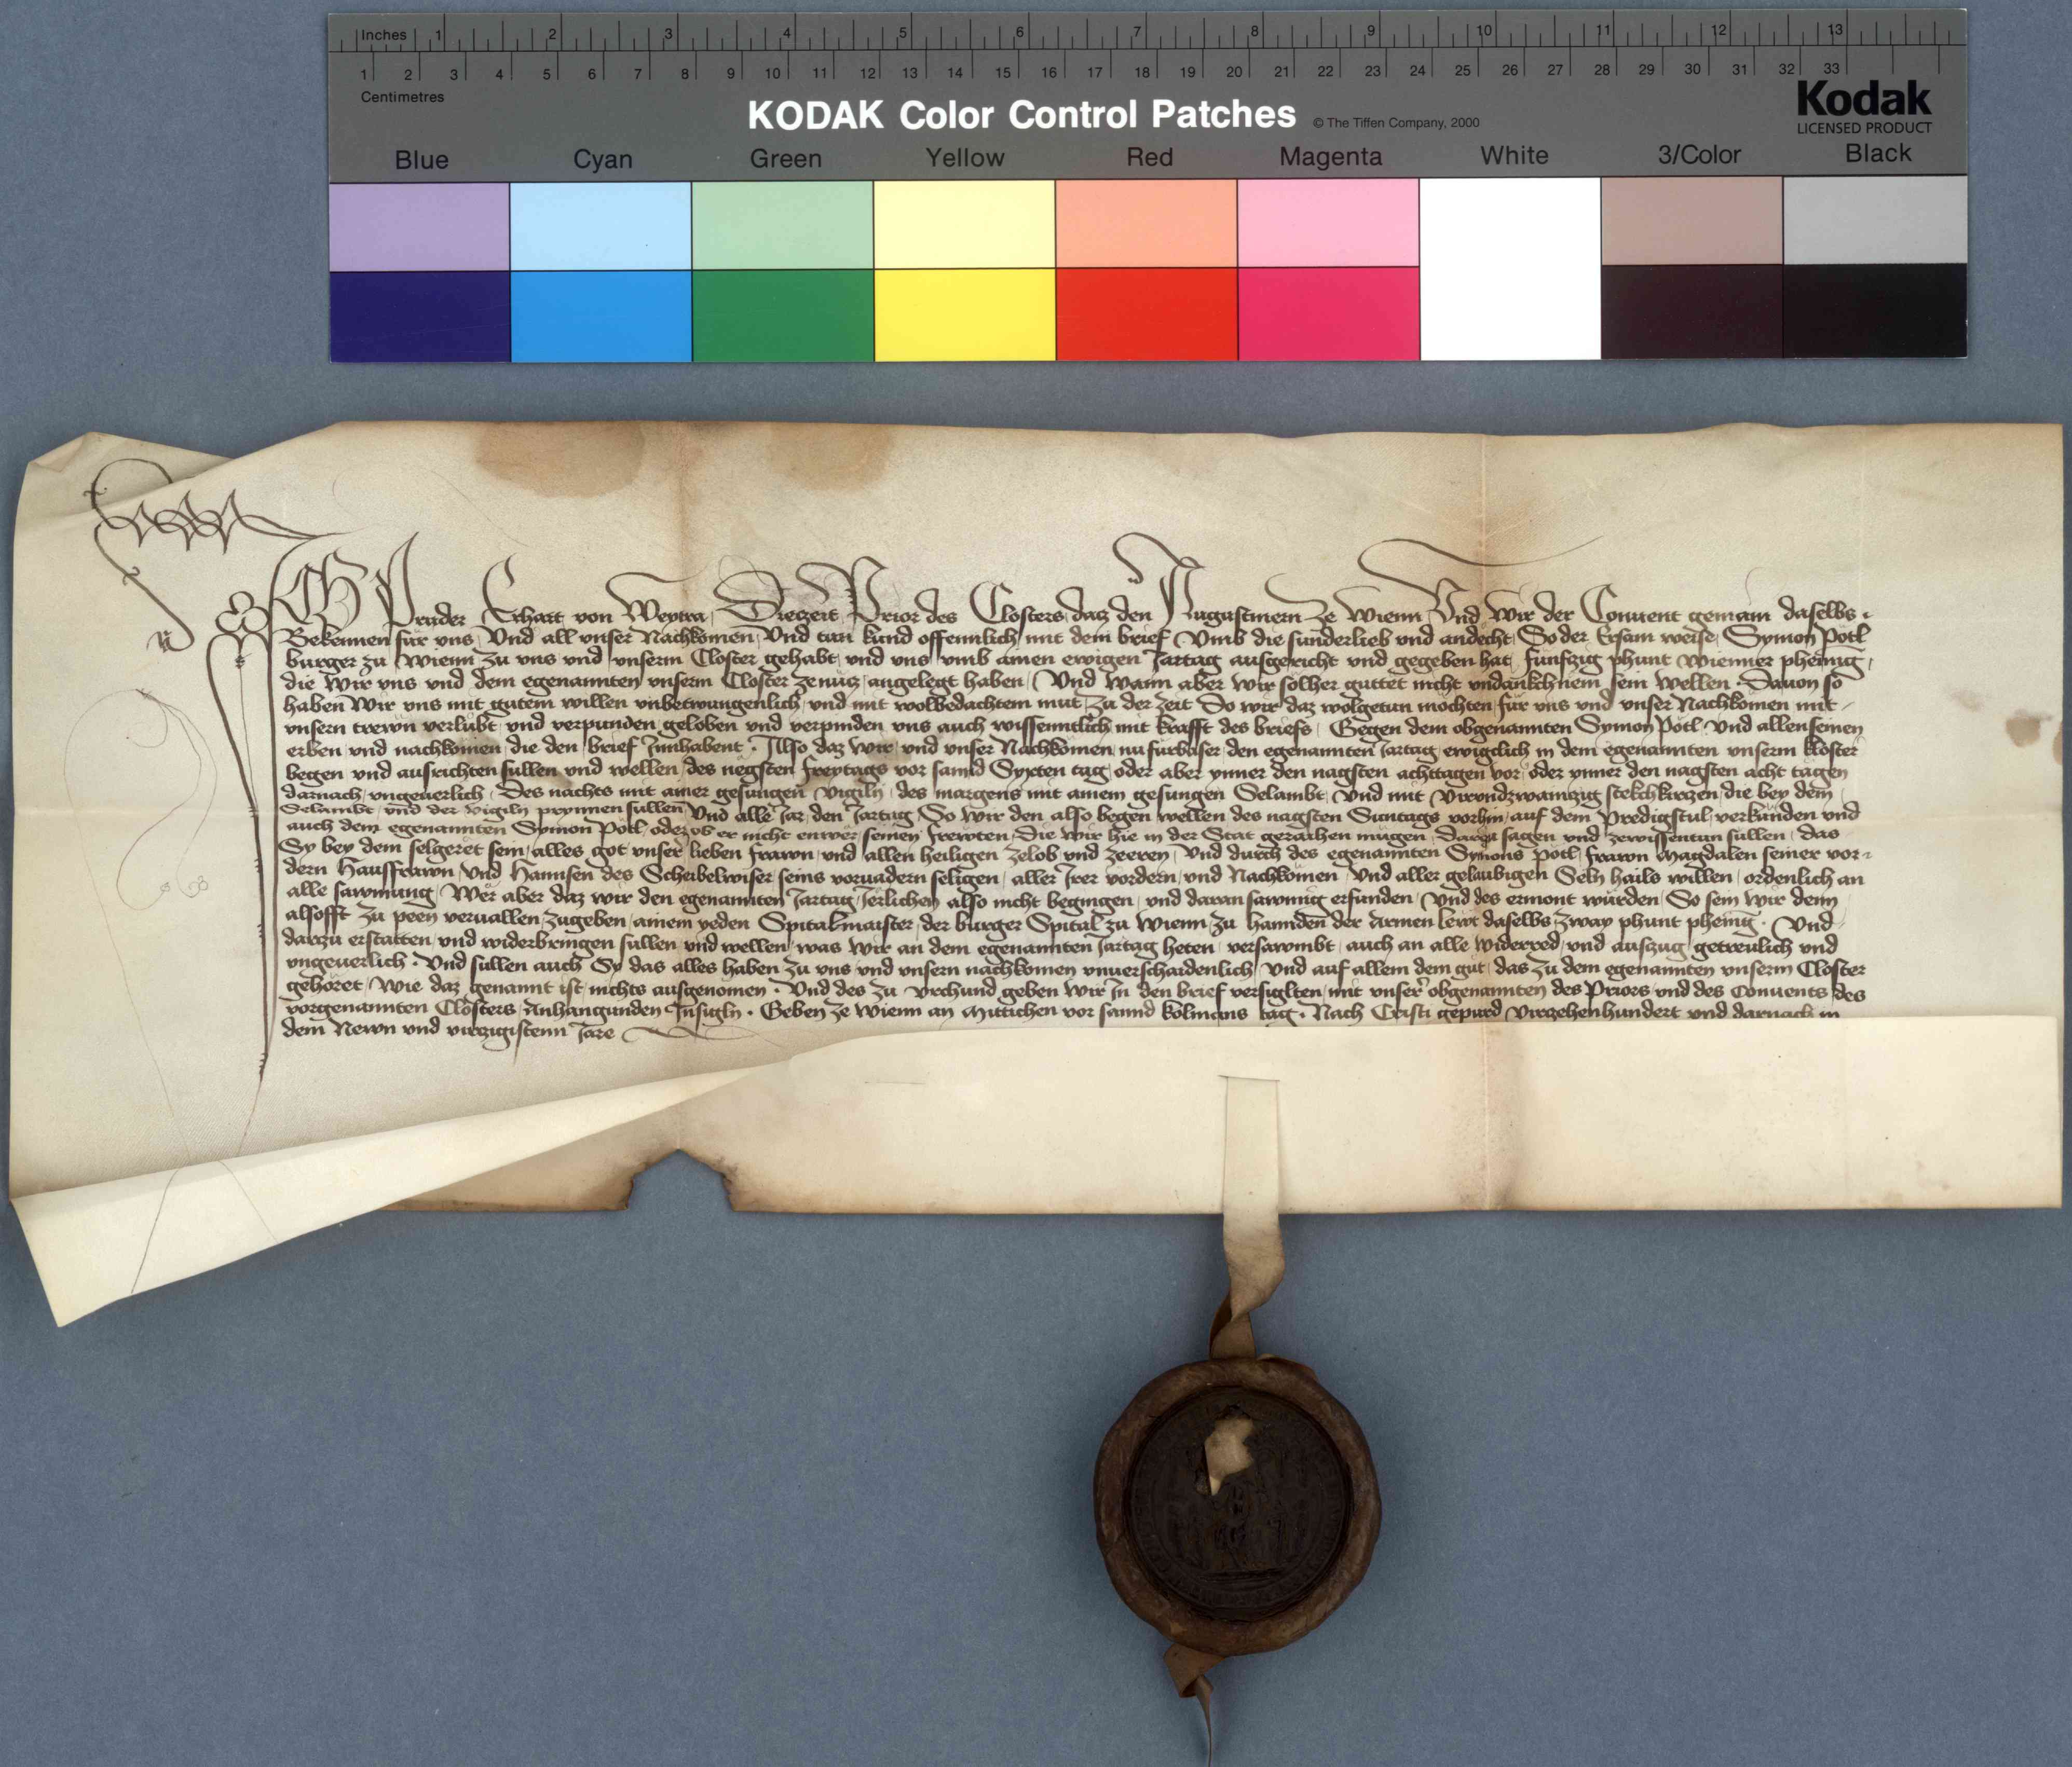 Inches 1 2 3 4 5 6 7 8 9 10 11 12 13
1 2 3 4 5 6 7 8 9 10 11 12 13 14 15 16 17 18 19 20 21 22 23 24 25 26 27 28 29 30 31 32 33
Centimetres
KODAK Color Control Patches © The Tiffen Company, 2000
Kodak
LICENSED PRODUCT
Blue Cyan Green Yellow Red Magenta White 3/Color Black
Ich Pruder Erhart von Weytra Diezeit Prior des Closters datz den Augustinern ze Wienn Und Wir der Conuent gemain daselbs
Bekennen fur vns Und all vnser Nachkomen Und tun kund offennlich mit dem brief Vmb die sunderlieb vnd andecht So der Ersam weise Symon Pötl
burger zu Wienn zu vns vnd vnserm Closter gehabt vnd vns vmb ainen ewigen Jartag ausgericht vnd gegeben hat funfzig phunt Wienner phening
die Wir vns vnd dem egenannten vnserm Closter zenutz angelegt haben Und wann aber wir solher guttet nicht vndankchnem sein wellen Dauon so
haben Wir vns mit gutem willen vnbetwungenlich vnd mit wolbedachtem mut zu der zeit So wir daz wolgetun mochten fur vns vnd vnser Nachkomen mit
vnsern trewn verlubt vnd verpunden geloben vnd verpinden vns auch wissenntlich mit krafft des briefs Gegen dem obgenannten Symon Pötl Und allen seinen
erben vnd nachkomen die den brief Innhabent Also daz wir vnd vnser Nachkomen nu furbaser den egenannten Jartag ewigclich in dem egenannten vnserm kloster
begen vnd ausrichten sullen vnd wellen des negsten freytags vor sannd Sixten tag oder aber ynner den nagsten achttagen vor oder ynner den nagsten acht tagen
darnach vngeuerlich Des nachts mit ainer gesungen Vigily des margens mit ainem gesungen Selambt Und mit Virundzwainzig stekchkerzen die bey dem
Selambt vnd der Vigily prynnen sullen Und alle Jar den Jartag So wir den also begen wellen des nagsten Suntags vorhin auf dem Predigstul verkunden vnd
auch dem egenannten Symon Pötl oder ob er nicht enwer seinen frewten Die wir hie in der Stat geraichen mugen Dartzu sagen vnd zewissentun sullen das
Sy bey dem selgeret sein alles got vnser lieben frawn vnd allen heiligen zelob vnd zeeren Und durch des egenannten Symons Pötl frawn Magdalen seiner vor
dern Hausfrawn Und Hannsen des Scheibelwiser seins voruadern seligen aller Irer vordern vnd Nachkomen Und aller gelaubigen Seln hails willen ordenlich an
alle sawmung Wer aber daz wir den egenannten Jartag Jerlichen also nicht begingen vnd daran sawmig erfunden Und des ermont wurden So sein wir denn
alsofft zu peen veruallen zugeben ainem yeden Spitalmaister der burger Spital zu Wienn zu hannden der Armen lewt daselbs zway phunt phening Und
darzu erstatten vnd widerbringen sullen vnd wellen was wir an dem egenannten Jartag heten versawmbt auch an alle widerred vnd auszug getreulich vnd
vngeuerlich Und sullen auch Sy das alles haben zu vns vnd vnsern nachkomen vnuerschaidenlich Und auf allem dem gut das zu dem egenannten vnserm Closter
gehoret wie daz genannt ist nichts ausgenomen Und des zu vrchund geben wir In den brief versiglten mit vnser obgenannten des Priors vnd des Conuents des
vorgenannten Closters Anhangunden Insigln Geben ze Wienn an Mittichen vor sannd kolmans tag Nach Cristi gepurd Virzehenhundert vnd darnach in
dem Newn vnd virzigistenn Jare